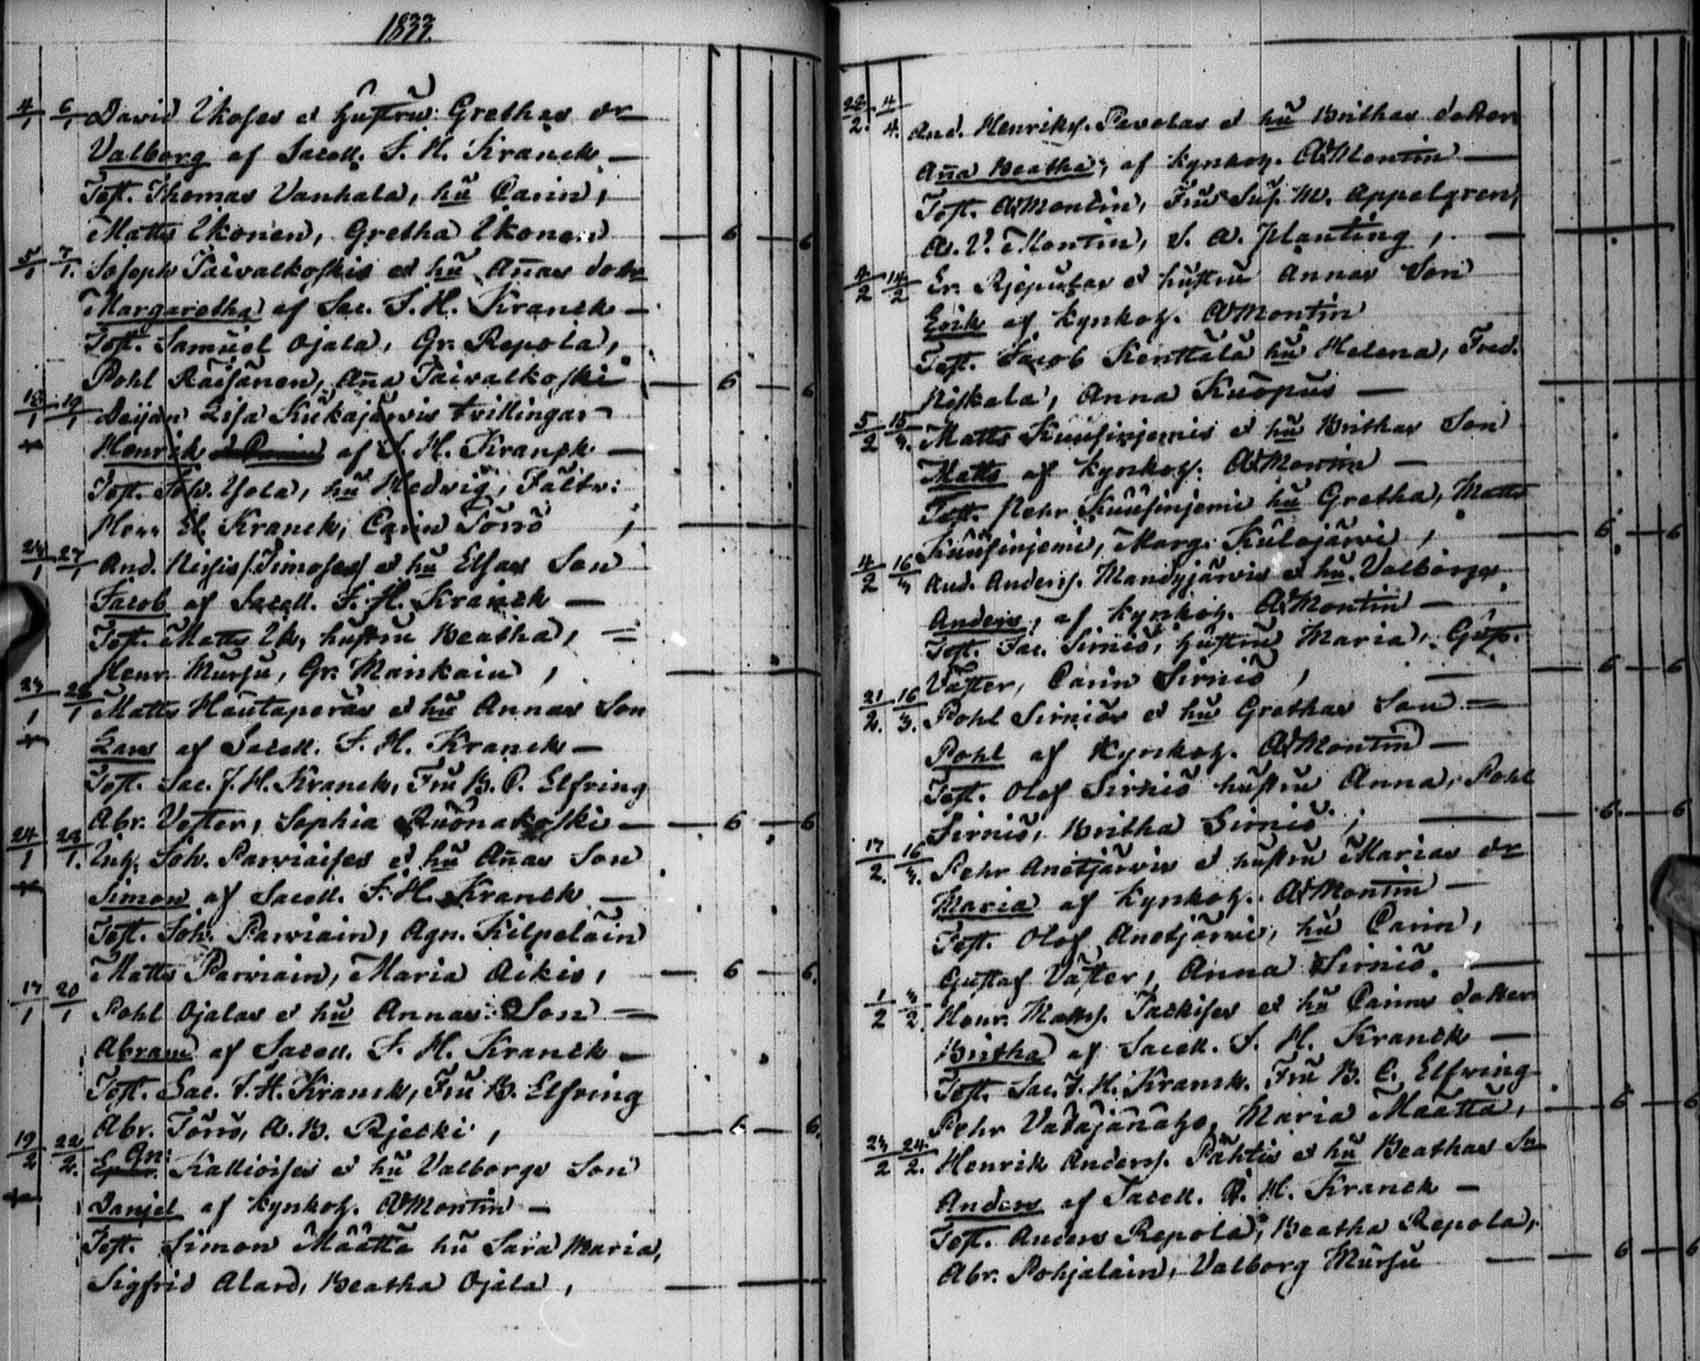 1822.
4/1 6/1 David Ikoses et hustru Grethas dr
Valborg af Sacell. J. H. Kranck —
Test. Thomas Vanhala, hu Carin,
Matts Ikonen, Gretha Ikonen — 6 — 6
5/1 7/1 Joseph Taivalkoskis et hu Añas dotr
Margaretha af Sac. J. H. Kranck —
Test. Samuel Ojala, Gr. Repola,
Pohl Räisänen, Aña Taivalkoski — 6 — 6
13/1 19/1 Lisa Kukajärvis tvillingar
Henrik af J. H. Kranck —
Test. Joh. Yola, hu Hedvig, Fältv:
Henr. El. Kranck, Carin Törrö
24/1 27/1 And. Simoses et hu Elsas Son
Jacob af Sacell. J. H. Kranck —
Test. Matts Ik, hustru Beatha, =
Henr. Mursu, Gr. Mankain,
23/1 28/1 Matts Hautaperäs et hu Annas Son
Lars af Sacell. J. H. Kranck —
Test. Sac. J. H. Kranck, Fru B. C. Elfving
Abr. Vester, Sophia Ruonakoski — 6 — 6
24/1 29/1. Inh. Joh. Parviaises et hu Añas Son
Simon af Sacell. J. H. Kranck —
Test. Joh. Parviain, Agn. Kilpeläin
Matts Parviain, Maria Aikis, — 6 — 6.
17/1 20/1 Pohl Ojalas et hu Annas Son =
Abram af Sacell. J. H. Kranck —
Test. Sac. J. H. Kranck, Fru B. Elfving
Abr. Törrö, A. B. Rjecki, — 6 — 6.
19/2 22/2. Gr: Kallioises et hu Valborgs Son
Daniel af Kyrkoh. AMontin —
Test. Simon Määtta hu Sara Maria,
Sigfrid Alard, Beatha Ojala,
22/2. 4/4. And. Henriks. Pavolas et hu Brithas dotter
Aña Beatha, af Kyrkoh. AMontin —
Test. AMontin, Fru Sus. M. Appelgren,
A. V. Montin, J. A. Planting,
4/2 14/2 Er. Rjepulas et hustru Annas Son
Erik af Kyrkoh. AMontin
Test. Jacob Kenttälä hu Helena, Fred.
Niskala, Anna Kuopus —
5/2 15/3. Matts Kuusinjemis et hu Brithas Son
Matts af Kyrkoh. AMontin —
Test. Pehr Kuusinjemi hu Gretha, Matts
Kuusinjemi, Marg. Kulojärvi, — 6 — 6
4/2 16/3 And. Anders. Mandyjärvis et hu Valborgs
Anders, af Kyrkoh. AMontin —
Test. Jac. Sirniö, hustru Maria, Gust.
Väster, Carin Sirniö, — 6 — 6
21/2. 16/3. Pohl Sirniös et hu Grethas Son =
Pohl af Kyrkoh. AMontin —
Test. Olof Sirniö hustru Anna, Pohl
Sirniö, Britha Sirniö, — 6 — 6
17/2. 16/3. Pehr Anetjärvis et hustru Marias dr
Maria af Kyrkoh. AMontin —
Test. Olof Anetjärvi, hu Carin,
Gustaf Väster, Anna Sirniö.
1/2 3/2. Henr. Matts. Tackises et hu Carins dotter
Britha af Sacell. J. H. Kranck —
Test. Sac. J. H. Kranck. Fru B. C. Elfving
Pehr Vadajänaho, Maria Maatta, — 6 — 6
23/2 24/2. Henrik Anders. Pähtis et hu Beathas Sn
Anders af Sacell. J. H. Kranck —
Test. Anders Repola, Beatha Repola,
Abr. Pohjalain, Valborg Mursu — 6 — 6